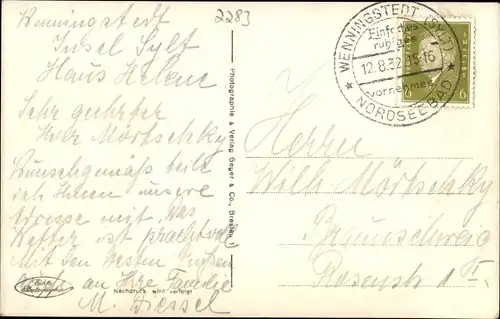 2283
Wenningstedt
Insel Sylt
Haus Helene
Sehr geehrter
Herr Mörtschky
Wunschgemäß teile
ich Ihnen unsere
Adresse mit, das
Wetter ist prachtvoll
Mit den besten Grüßen
auch an Ihre Familie
M. Diessel
Photographie & Verlag Geyer & Co., Breslau 1
Nachdruck wird verfolgt
WENNINGSTEDT (SYLT)
Einfaches
ruhiges
12.8.32.15-16
vornehmes
NORDSEEBAD
6 6
Herrn
Wilh Mörtschky
Braunschweig
Rosenstr